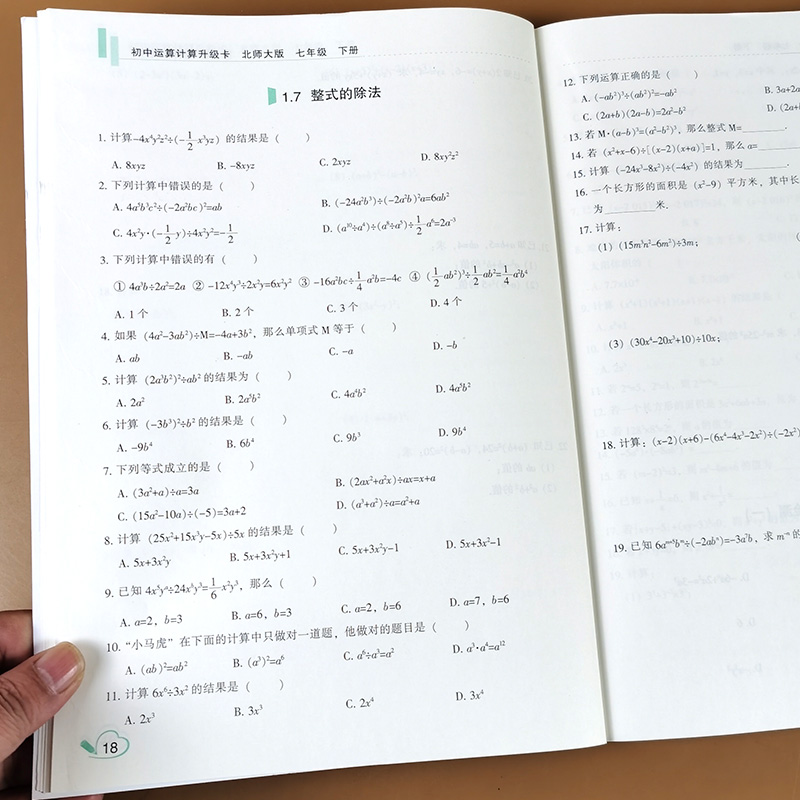 初中运算计算升级卡 北师大版 七年级 下册
1.7 整式的除法
1. 计算-4x⁴y²z²÷(-1/2x³yz) 的结果是（ ）
A. 8xyz B. -8xyz C. 2xyz D. 8xy²z²
2. 下列计算中错误的是（ ）
A. 4a⁵b³c²÷(-2a²bc)²=ab B. (-24a²b³)÷(-2a²b)³a=6ab²
C. 4x²y·(-1/2y)÷4x²y²=-1/2 D. (a¹⁰÷a⁴)÷(a⁸÷a⁵)÷1/2a⁶=2a⁻³
3. 下列计算中错误的有（ ）
① 4a³b÷2a²=2a ② -12x⁴y³÷2x²y=6x²y² ③ -16a²bc÷1/4a²b=-4c ④ (1/2ab²)³÷1/2ab²=1/4a²b⁴
A. 1 个 B. 2 个 C. 3 个 D. 4 个
4. 如果 (4a²-3ab²)÷M=-4a+3b²，那么单项式 M 等于（ ）
A. ab B. -ab C. -a D. -b
5. 计算 (2a³b²)²÷ab² 的结果为（ ）
A. 2a² B. 2a⁵b² C. 4a⁴b² D. 4a⁵b²
6. 计算 (-3b³)²÷b² 的结果是（ ）
A. -9b⁴ B. 6b⁴ C. 9b³ D. 9b⁴
7. 下列等式成立的是（ ）
A. (3a²+a)÷a=3a B. (2ax²+a²x)÷ax=x+a
C. (15a²-10a)÷(-5)=3a+2 D. (a³+a²)÷a=a²+a
8. 计算 (25x²+15x³y-5x)÷5x 的结果是（ ）
A. 5x+3x²y B. 5x+3x²y+1 C. 5x+3x²y-1 D. 5x+3x²-1
9. 已知 4x⁵yᵃ÷24xᵇy³=1/6x²y³，那么（ ）
A. a=2，b=3 B. a=6，b=3 C. a=2，b=6 D. a=7，b=6
10. “小马虎”在下面的计算中只做对一道题，他做对的题目是（ ）
A. (ab)²=ab² B. (a³)²=a⁶ C. a⁶÷a³=a² D. a³·a⁴=a¹²
11. 计算 6x⁶÷3x² 的结果是（ ）
A. 2x³ B. 3x³ C. 2x⁴ D. 3x⁴
18
12. 下列运算正确的是（ ）
A. (-ab²)³÷(ab²)²=-ab² B. 3a+2a
C. (2a+b)(2a-b)=2a²-b² D. (2a+
13. 若 M·(a-b)³=(a²-b²)³，那么整式 M=______.
14. 若 (x²+x-6)÷[(x-2)(x+a)]=1，那么 a=______
15. 计算 (-24x³-8x²)÷(-4x²) 的结果为______.
16. 一个长方形的面积是 (x²-9) 平方米，其中长
为______米.
17. 计算：
(1) (15m³n²-6m²)÷3m；
(3) (30x⁴-20x³+10)÷10x；
18. 计算：(x-2)(x+6)-(6x⁴-4x³-2x²)÷(-2x²)
19. 已知 6aᵐ⁺⁵bᵐ÷(-2abⁿ)=-3a⁷b，求 m⁻ⁿ 的